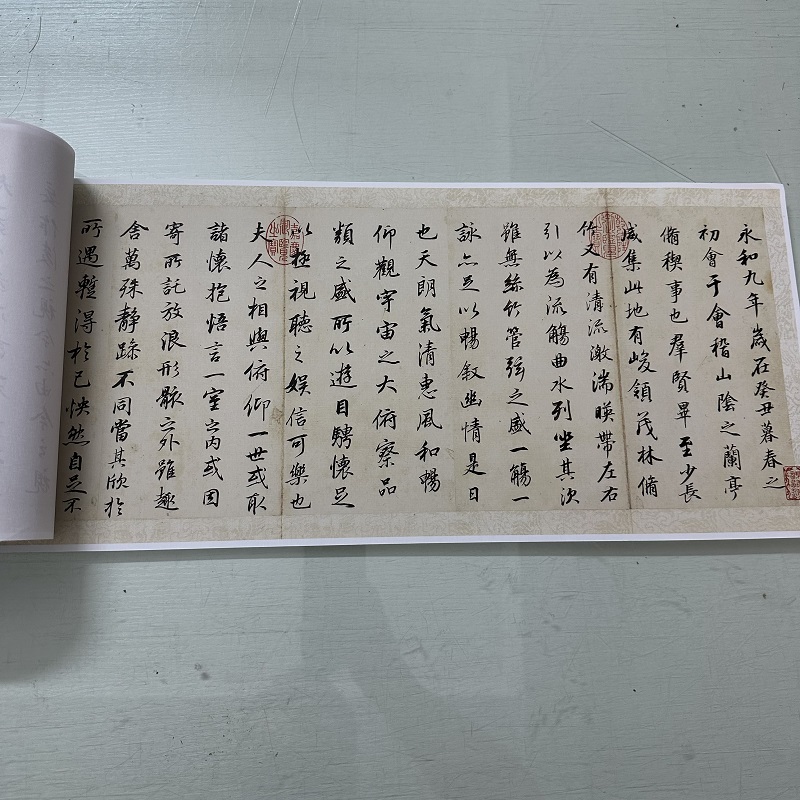 永和九年歲在癸丑暮春之
初會于會稽山陰之蘭亭
脩稧事也羣賢畢至少長
咸集此地有峻領茂林脩
竹又有清流激湍暎帶左右
引以為流觴曲水列坐其次
雖無絲竹管弦之盛一觴一
詠亦足以暢敘幽情是日
也天朗氣清惠風和暢
仰觀宇宙之大俯察品
類之盛所以遊目騁懷足
以極視聽之娛信可樂也
夫人之相與俯仰一世或取
諸懷抱悟言一室之內或因
寄所託放浪形骸之外雖趣
舍萬殊靜躁不同當其欣於
所遇蹔得於己怏然自足不